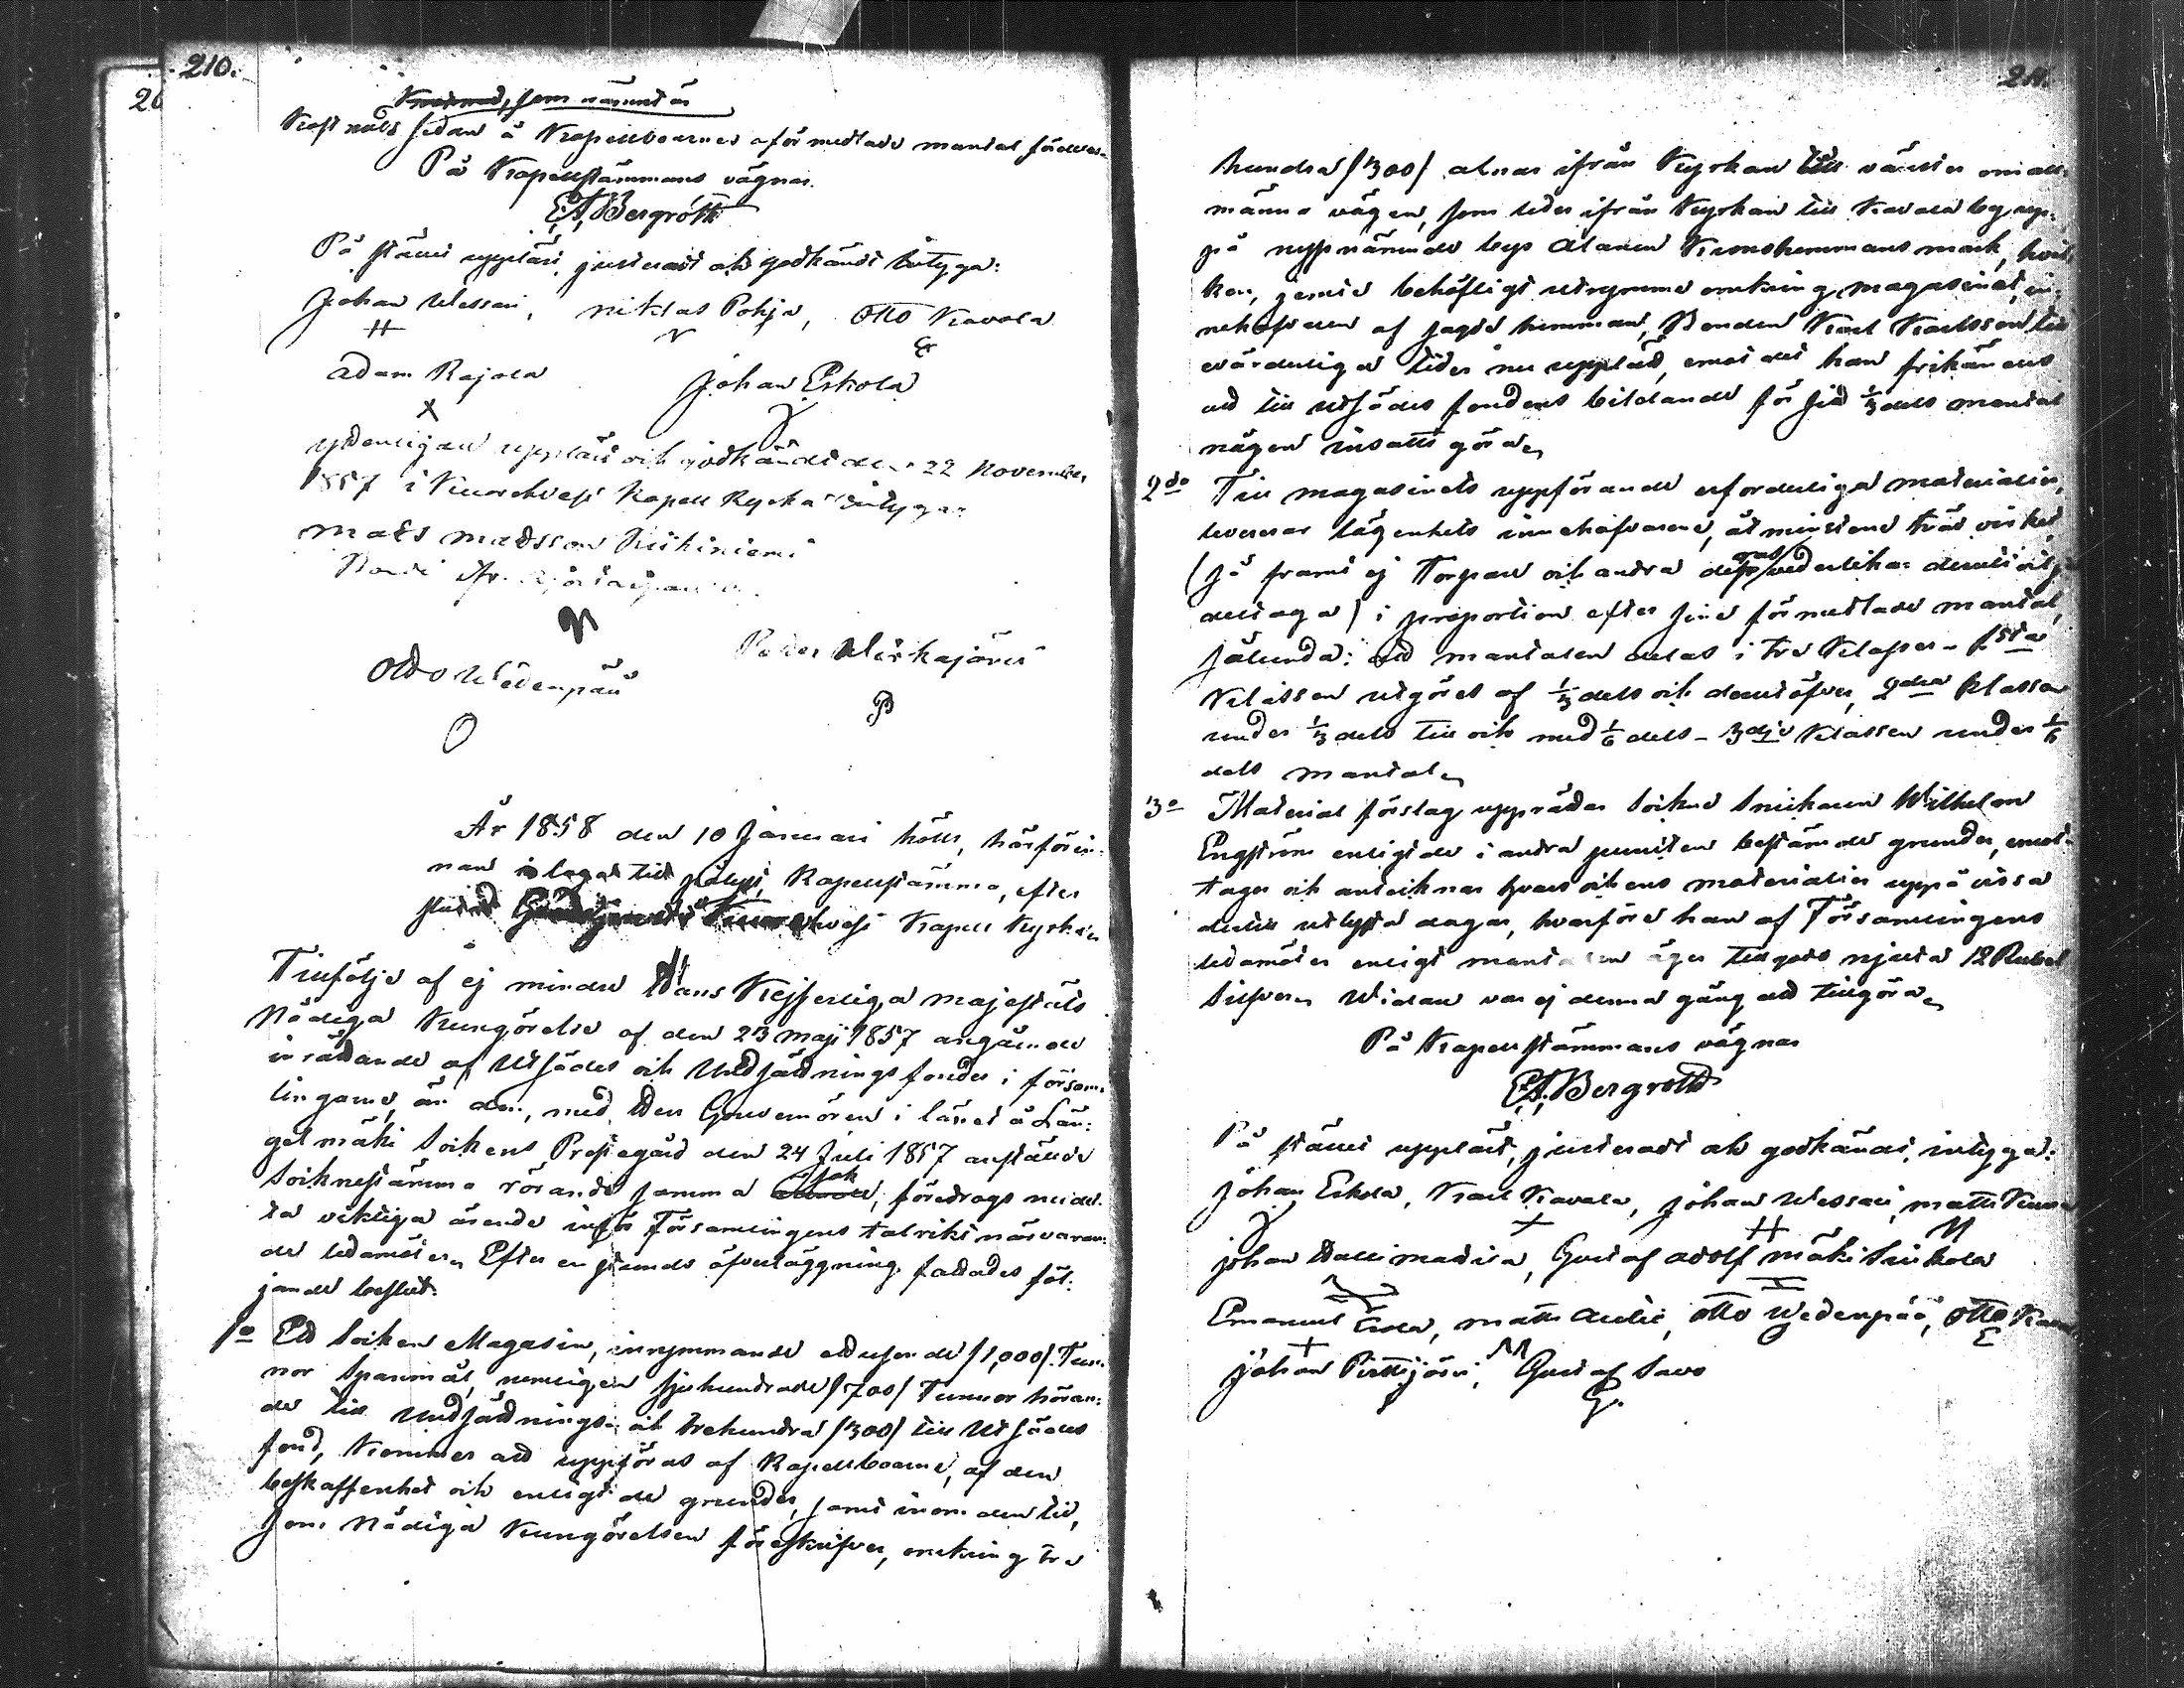 210.
Kostnad, som nämnt är
Kostnads sedan å Kapellboernes oförmedlade mantal fördelas.
På Kapellstämmans vägnar.
E.A. Bergroth
På stämi uppläst, justeradt och godkändt betyga:
Johan Wessari, Niklas Pohja, Otto Kavala
Adam Rajala Johan Eskola
X
Ydterligare uppläst och godkändt den 22 November
1857 i Kuorehvesi Kapell Kyrka betygar
Mats Madsson Kiikiniemi
Otto Wedenpää Peter Wirkajärvi
År 1858 den 10 Januari hölls, härförin-
nan i laga tid pålyst, Kapellstämma, efter
slutad Gudstjenst i Kuorehvesi Kapell Kyrka.
Tillfölje af ej mindre Hans Kejserliga Majestäts
Nådiga Kungörelse af den 23 Maji 1857 angående
inrättande af Utsädes och Undsättnings fonder i försam-
lingarne, än den, med Herr Gouvernören i länet å Län-
gelmäki Sockens Prestegård den 24 Juli 1857 anstälde
Socknestämma rörande samma sak, föredrogs
ta viktiga ärende inför Församlingens talrikt närvaran-
de ledamöter. Efter en stunds öfverläggning fattades föl-
jande beslut:
1o Ett Socken Magasin, inrymmande ettusende /1,000/ Tun-
nor Spanmål, nemligen sjuhundrade /700/ Tunnor höran-
de till Undsättnings- och trehundra /300/ till Utsädes
fond, kommer att uppföras af Kapellboerne, af den
beskaffenhet och enligt de grunder, samt inom den tid,
som Nådiga Kungörelsen föreskrifver, omkring tre
211.
hundra /300/ alnar ifrån Kyrkan till vänster om all-
männa vägen, som leder ifrån Kyrkan till Kavala by
på nyssnämnde bys Alanen Kronohemmans mark, hvil-
ken, jemte behöfligt utrymme omkring magasinet, in-
nehafvaren af sagde hemman, Bonden Karl Karlsson till
evärdeliga tider nu upplåt, emot det han frikännes
att till Utsädes fondens bildande för sid 1/3 dels mantal
någon insatts göra.
2do Till magasinets uppförande erforderliga materialier,
leverera lägenhets innehafvarene, åtminstone träd virket,
(så framt ej Torpare och andra deras vederlikar
deltaga) i proportion efter sine förmedlade mantal,
sålunda: att mantalen delas i tre Klasser - 1sta
Klassen utgöres af 1/3 dels och deröfver, 2dra Klassen
under 1/3 dels till och med 1/6 dels - 3dje Klassen under 1/6
dels mantal.
3o Material förslag upprättar Sockne Snickaren Wilhelm
Engström enligt de i andra punkten bestämde grunder, emot-
tager och antecknar hvars och ens materialier uppå vissa
dertill utlysta dagar, hvarföre han af Församlingens
ledamöter enligt mantalen äger tillgodo njuta 12 Rubel
Silfver. Widare var ej denna gång att tillgöra.
På Kapellstämmans vägnar
E.A. Bergroth
På stämi uppläst, justeradt och godkändt, intyga:
Johan Eskola, Karl Kavala, Johan Wessari, Matts
Johan Hallimadila, Gustaf Adolf Mäki Sinkola
Emanuel Eskola, Matts, Otto Wedenpää, Otto
Johan Pirttijärvi, Gustaf Savo